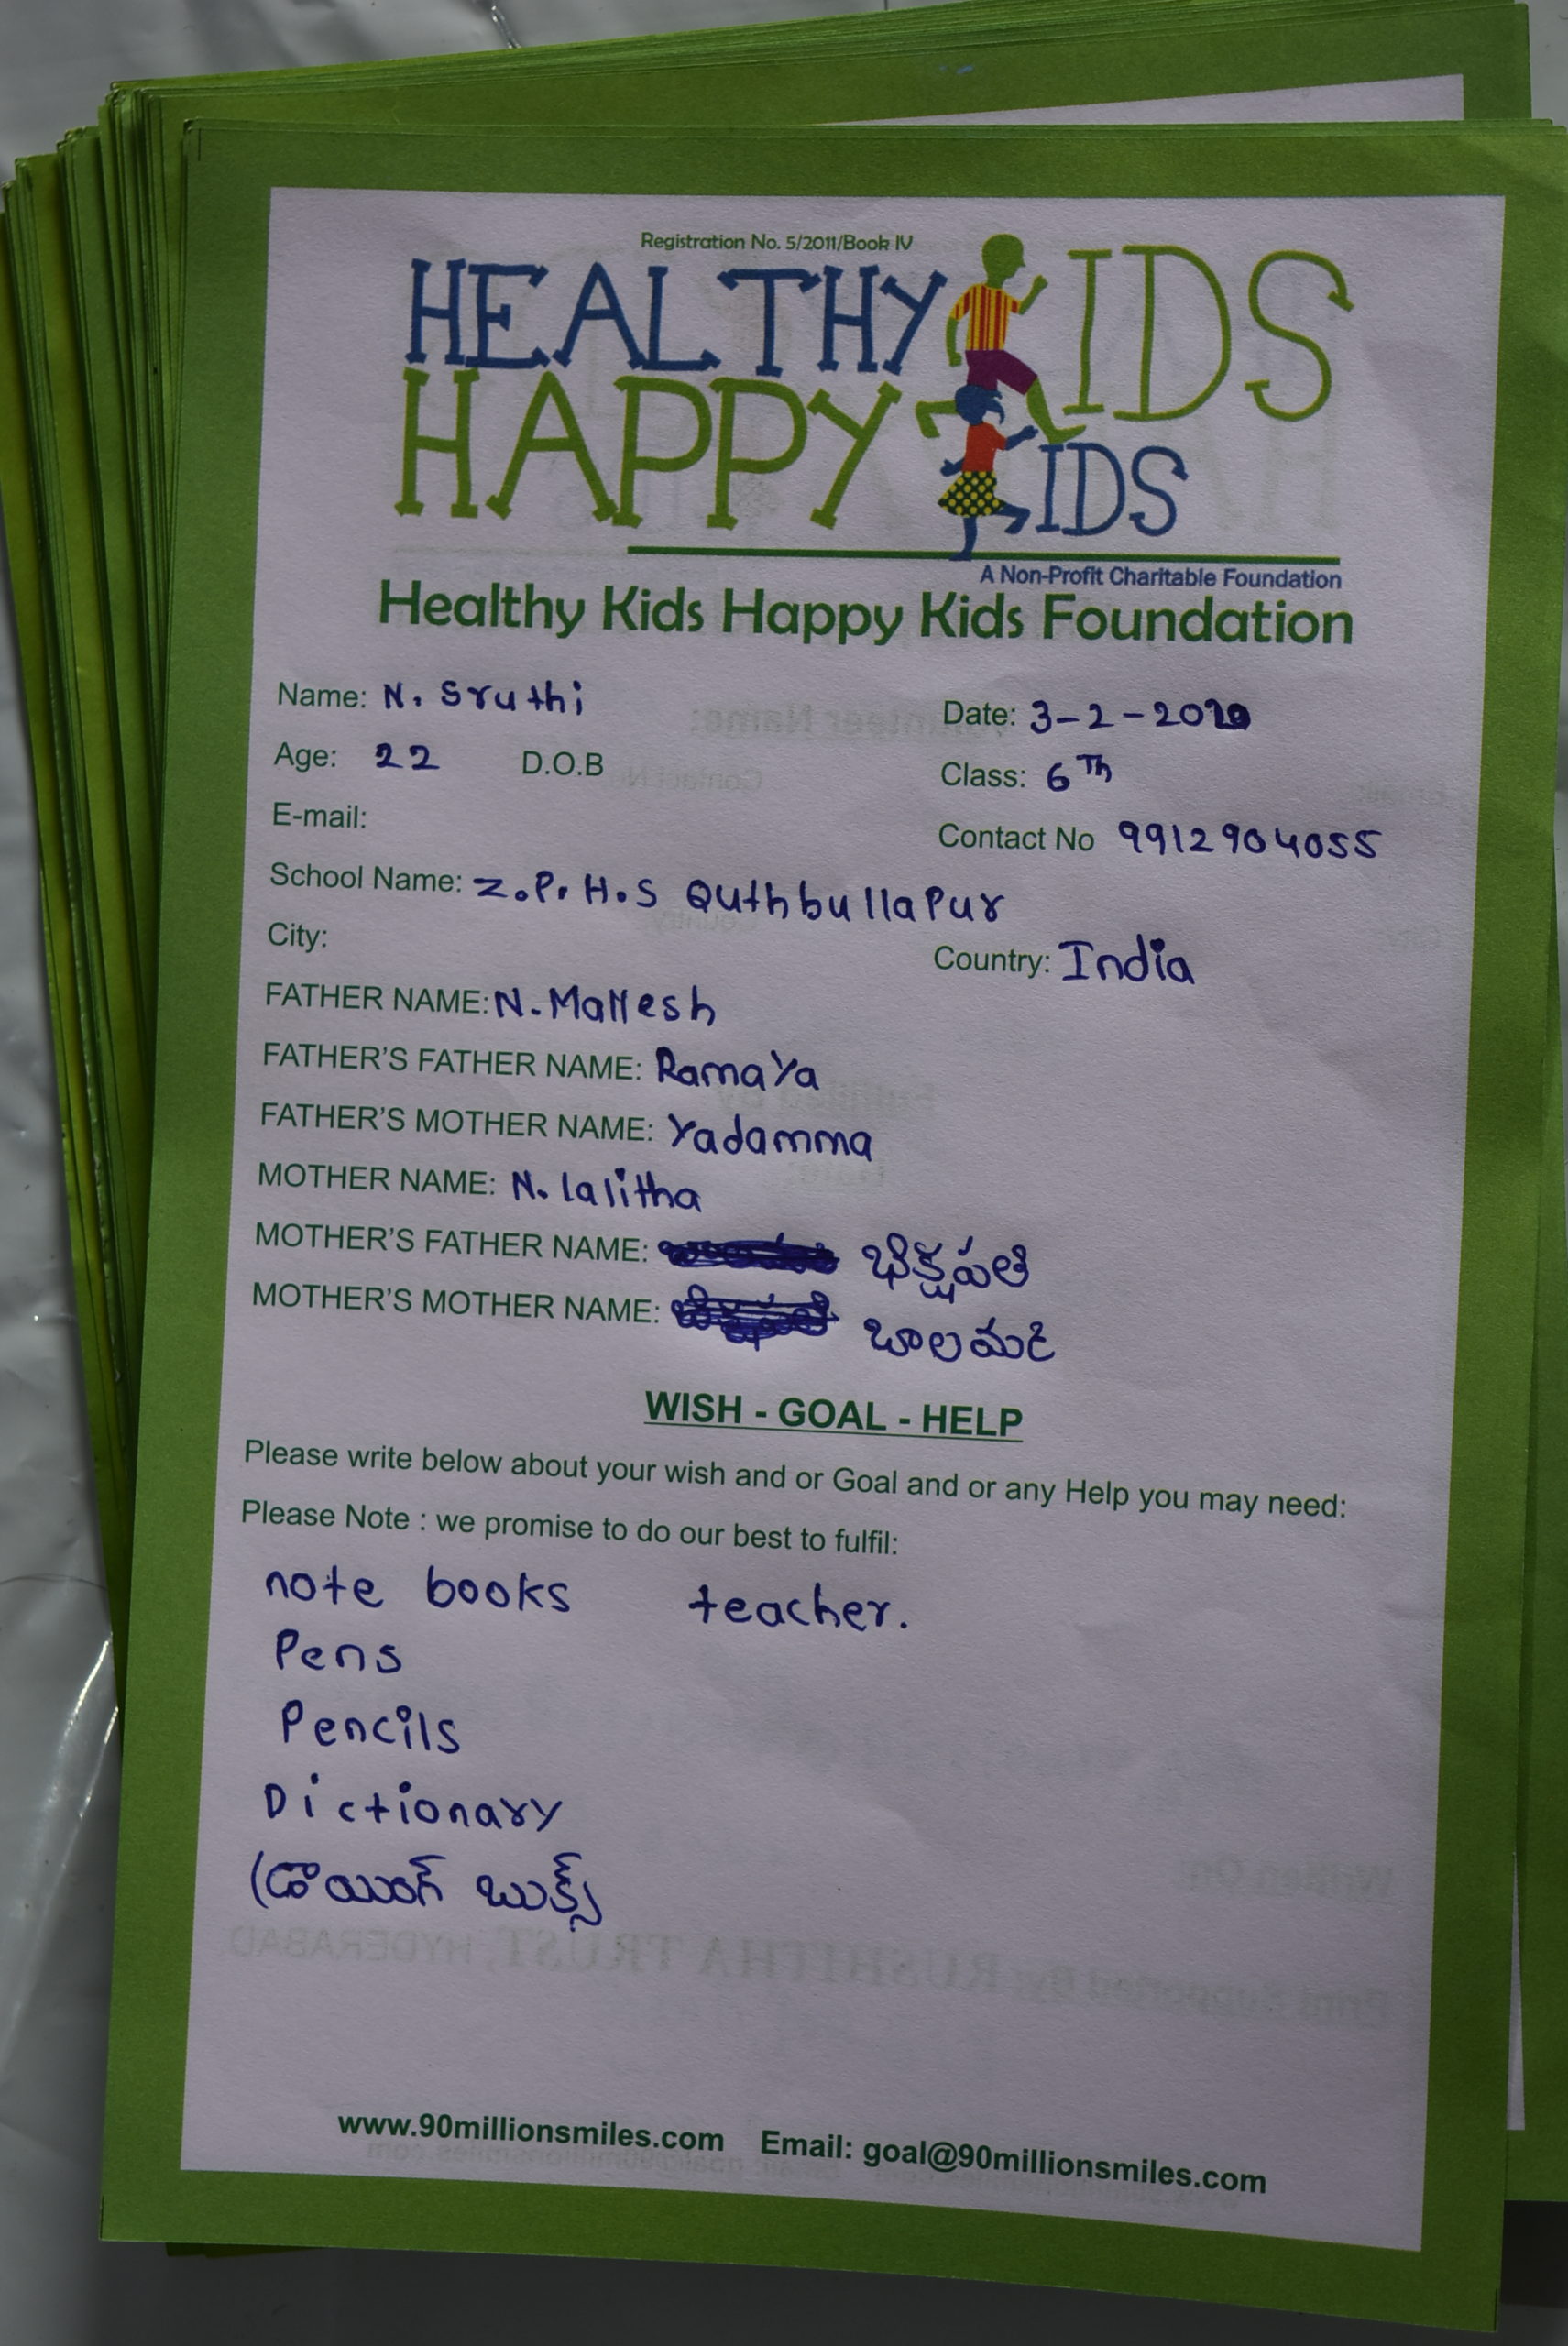 Registration No. 5/2011/Book IV
HEALTHY KIDS
HAPPY KIDS
A Non-Profit Charitable Foundation
Healthy Kids Happy Kids Foundation
Name: N. Sruthi
Date: 3-2-20
Age: 22 D.O.B
Class: 6Th
E-mail:
Contact No 9912904055
School Name: Z.P.H.S QuthbullaPur
City:
Country: India
FATHER NAME: N. Mallesh
FATHER'S FATHER NAME: RamaYa
FATHER'S MOTHER NAME: Yadamma
MOTHER NAME: N. lalitha
MOTHER'S FATHER NAME: భిక్షపతి
MOTHER'S MOTHER NAME:
WISH - GOAL - HELP
Please write below about your wish and or Goal and or any Help you may need:
Please Note : we promise to do our best to fulfil:
note books teacher.
Pens
Pencils
Dictionary
డ్రాయింగ్ బుక్స్
www.90millionsmiles.com Email: goal@90millionsmiles.com